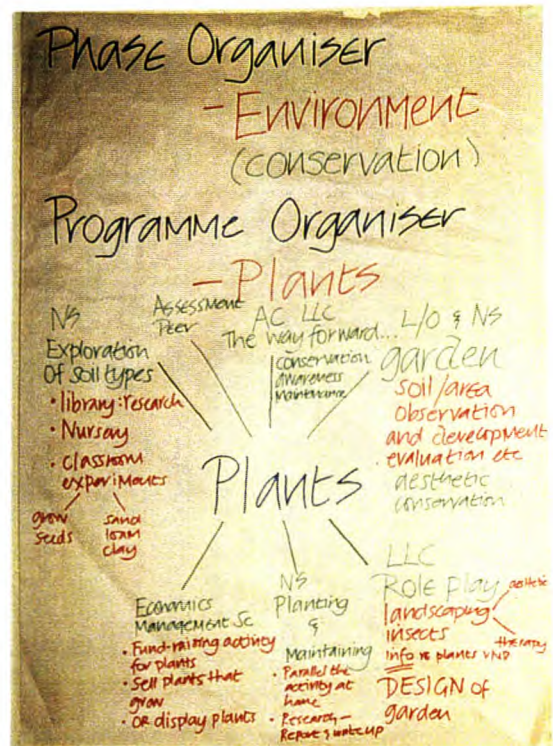 Phase Organiser
- Environment
(conservation)
Programme Organiser
- Plants
NS
Exploration
of soil types
• library: research
• Nursery
• classroom
experiments
grow
seeds
sand
loam
clay
Assessment
Peer
AC LLC
The way forward...
conservation
awareness
maintenance
L/O & NS
garden
soil/area
observation
and development
evaluation etc
aesthetic
conservation
Plants
Economics
Management Sc
• Fund-raising activity
for plants
• Sell plants that
grow
• OR display plants
NS
Planting
&
Maintaining
• Parallel the
activity at
home
• Research -
Report & write up
LLC
Role play
landscaping
aesthetic
therapy
insects
info re plants
DESIGN of
garden